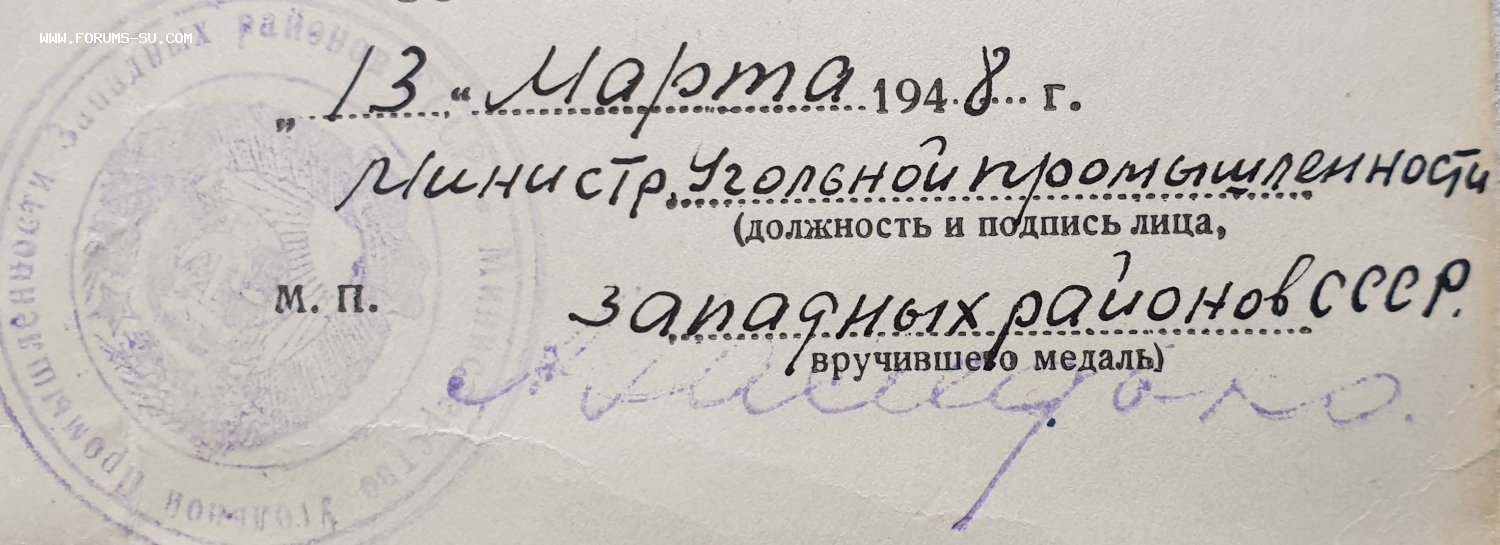 WWW.FORUMS-SU.COM
„ 13 “ Марта 1948 г.
Министр Угольной промышленности
(должность и подпись лица,
М. П.
западных районов СССР.
вручившего медаль)
Министерство Угольной Промышленности Западных районов СССР